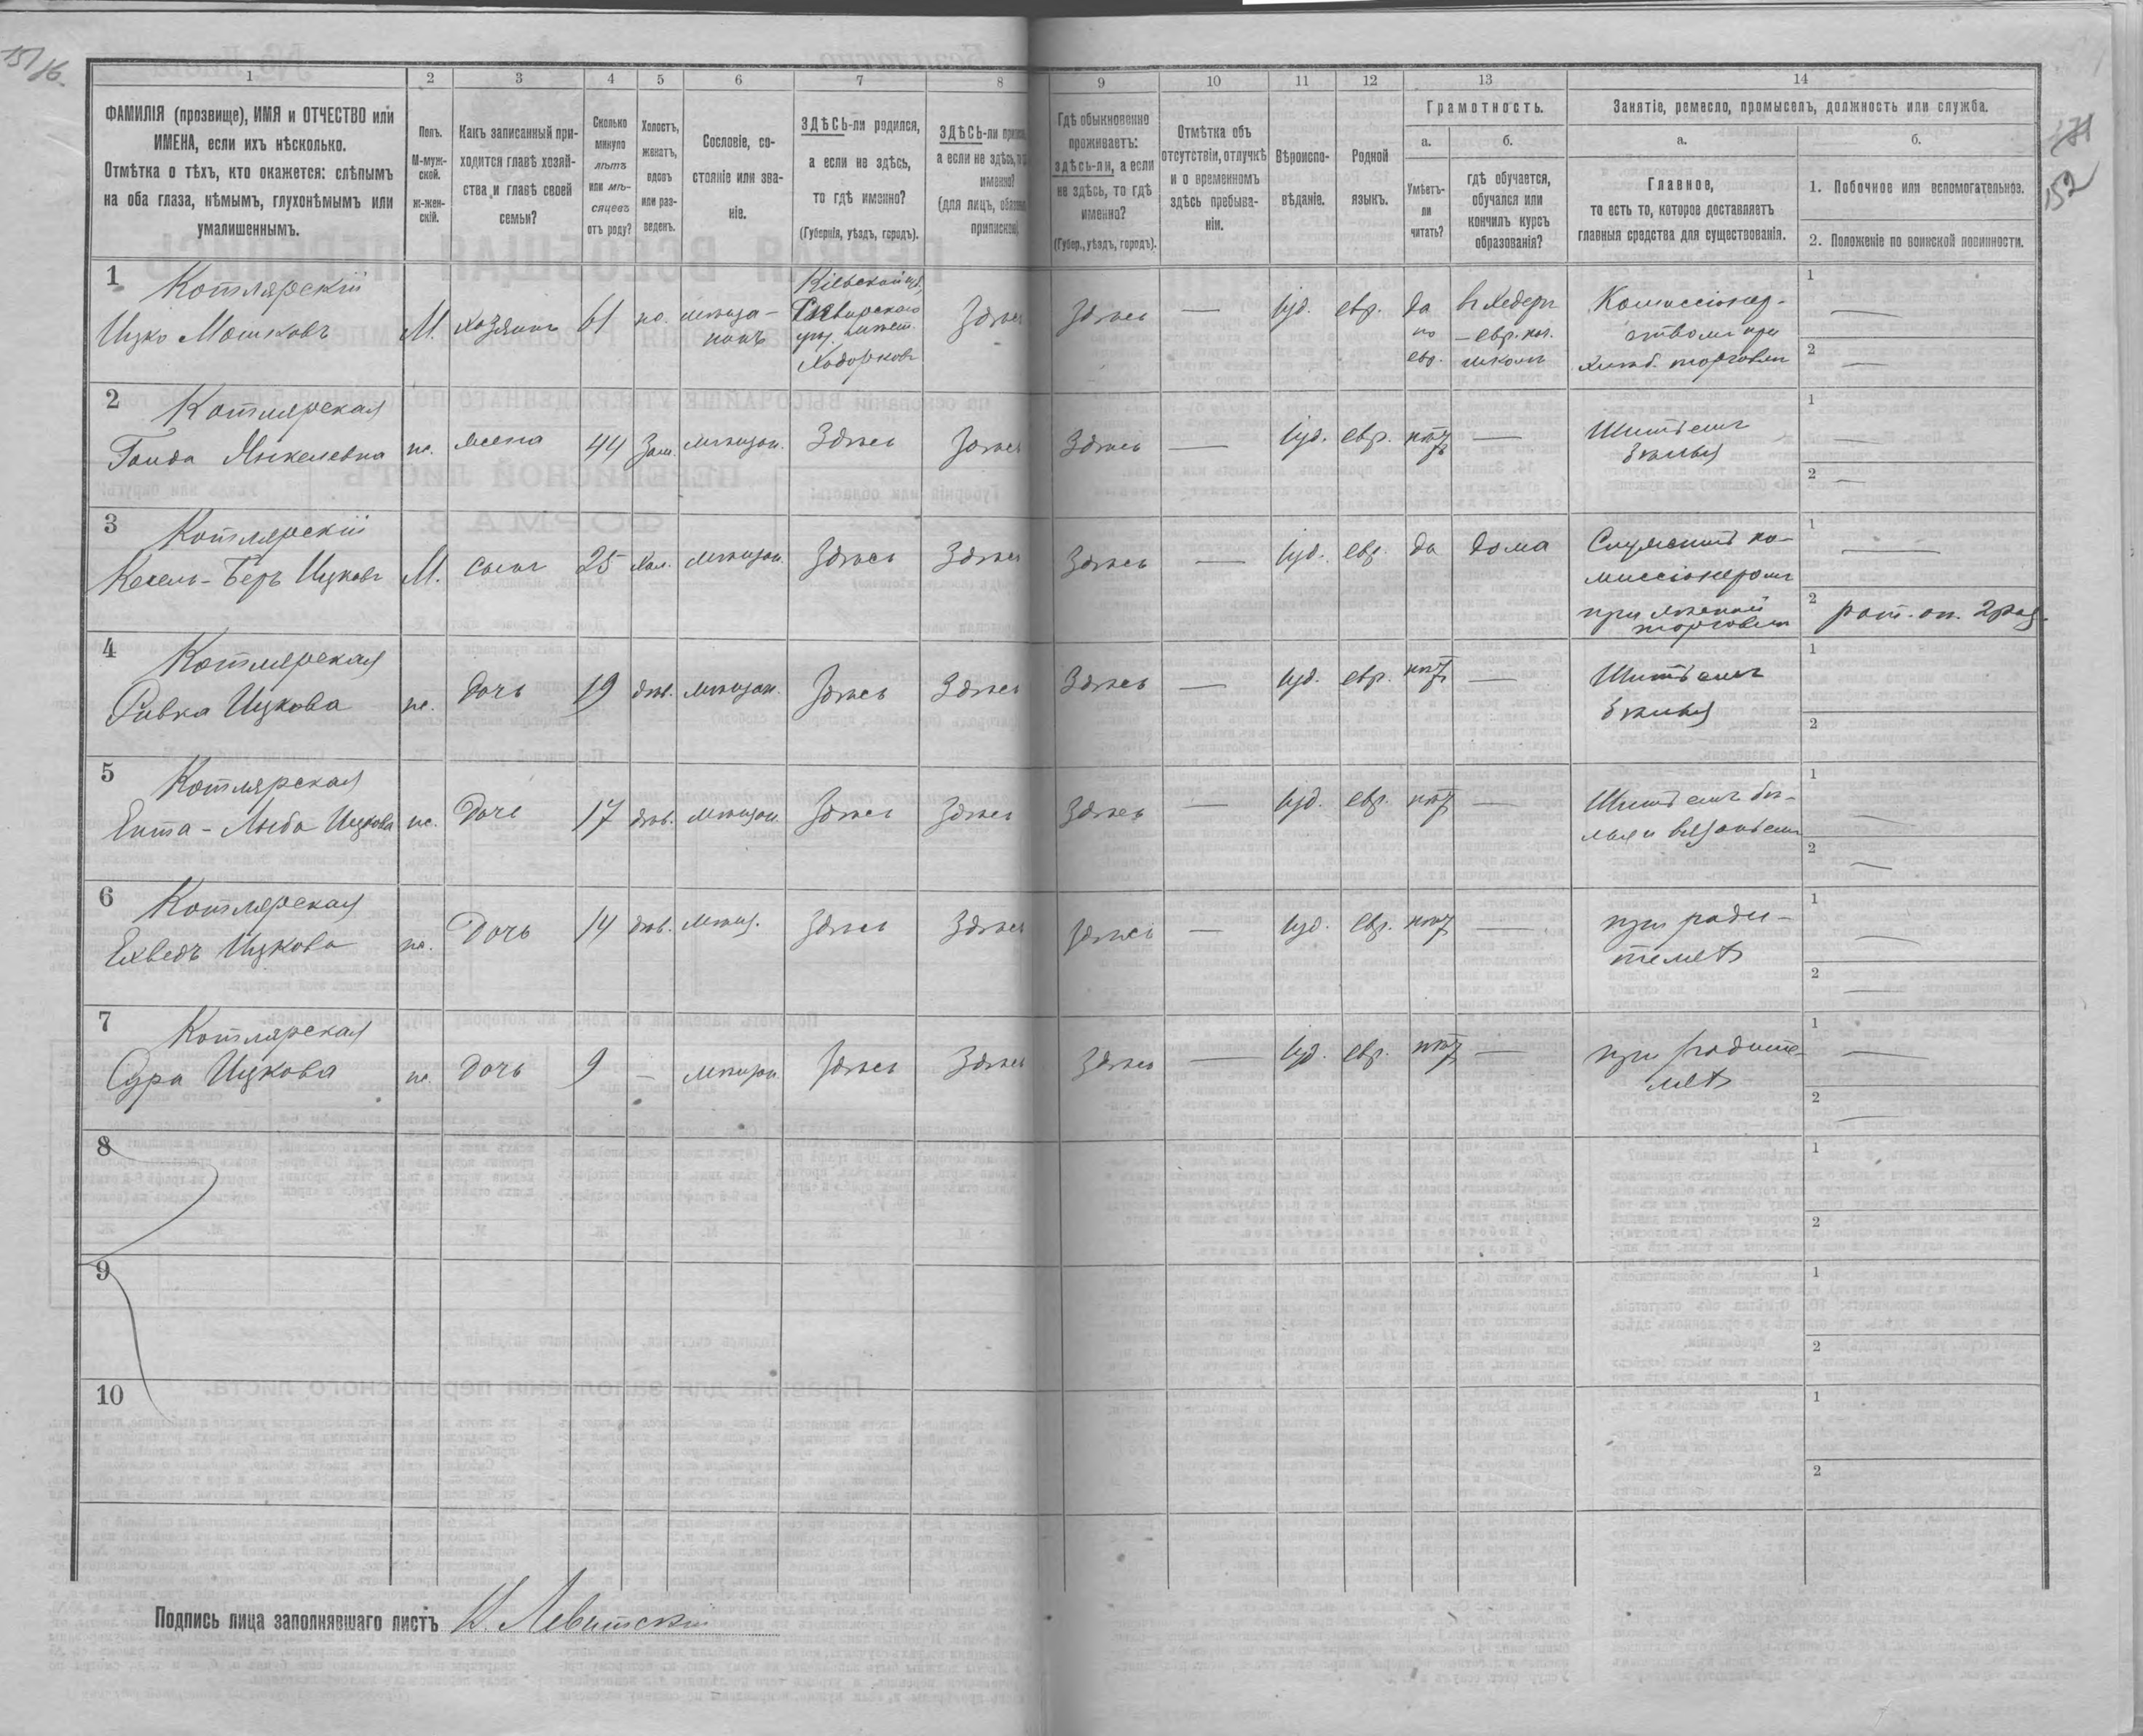 151 об.
1
2
3
4
5
6
7
8
ФАМИЛІЯ (прозвище), ИМЯ и ОТЧЕСТВО или
ИМЕНА, если ихъ нѣсколько.
Отмѣтка о тѣхъ, кто окажется: слѣпымъ
на оба глаза, нѣмымъ, глухонѣмымъ или
умалишеннымъ.
Полъ.
М-муж-
ской.
ж-жен-
скій.
Какъ записанный при-
ходится главѣ хозяй-
ства и главѣ своей
семьи?
Сколько
минуло
лѣтъ
или мѣ-
сяцевъ
отъ роду?
Холостъ,
женатъ,
вдовъ
или раз-
веденъ.
Сословіе, со-
стояніе или зва-
ніе.
ЗДѢСЬ-ли родился,
а если не здѣсь,
то гдѣ именно?
(Губернія, уѣздъ, городъ).
ЗДѢСЬ-ли
а если не здѣсь,
именно?
(для лицъ,
9
10
11
12
13
14
Гдѣ обыкновенно
проживаетъ:
здѣсь-ли, а если
не здѣсь, то гдѣ
именно?
(Губер., уѣздъ, городъ).
Отмѣтка объ
отсутствіи, отлучкѣ
и о временномъ
здѣсь пребыва-
ніи.
Вѣроиспо-
вѣданіе.
Родной
языкъ.
Грамотность.
а.
Умѣетъ-
ли
читать?
б.
гдѣ обучается,
обучался или
кончилъ курсъ
образованія?
Занятіе, ремесло, промыселъ, должность или служба.
а.
Главное,
то есть то, которое доставляетъ
главныя средства для существованія.
б.
1. Побочное или вспомогательное.
2. Положеніе по воинской повинности.
152
1 Котлярскій
Ицко Мошковъ
М. хозяинъ 61 же. мѣща-
нинъ
Кіевской губ.,
Сквирскаго
уѣз. мѣст.
Ходорковъ
Здѣсь Здѣсь — Іуд. евр. да
по
евр.
въ хедерѣ
— евр. нач.
школѣ
Комиссіонер-
ствомъ при
хлѣб. торговли
1 —
2 —
2 Котлярская
Голда Янкелевна
ж. жена 44 Зам. мѣщан. Здѣсь Здѣсь Здѣсь — Іуд. евр. нѣтъ —
Шитьемъ
бѣлья
1 —
2 —
3 Котлярскій
Кесель-Беръ Ицковъ
М. сынъ 25 хол. мѣщан. Здѣсь Здѣсь Здѣсь — Іуд. евр. да дома
Служитъ ко-
миссіонеромъ
при хлѣбной
торговли
1 —
2 рат. оп. 2 раз.
4 Котлярская
Ривка Ицкова
ж. Дочь 19 дѣв. мѣщан. Здѣсь Здѣсь Здѣсь — Іуд. евр. нѣтъ —
Шитьемъ
бѣлья
1
2
5 Котлярская
Ента-Лыба Ицкова
ж. Дочь 17 дѣв. мѣщан. Здѣсь Здѣсь Здѣсь — Іуд. евр. нѣтъ —
Шитьемъ бѣ-
лья и вязаньемъ
1 —
2 —
6 Котлярская
Ехведъ Ицкова
ж. Дочь 14 дѣв. мѣщ. Здѣсь Здѣсь Здѣсь — Іуд. евр. нѣтъ —
при роди-
теляхъ
1 —
2 —
7 Котлярская
Сура Ицкова
ж. Дочь 9 — мѣщан. Здѣсь Здѣсь Здѣсь — Іуд. евр. нѣтъ —
при родите-
ляхъ
1 —
2 —
8
1
2
9
1
2
10
1
2
Подпись лица заполнявшаго листъ К. Левитскій